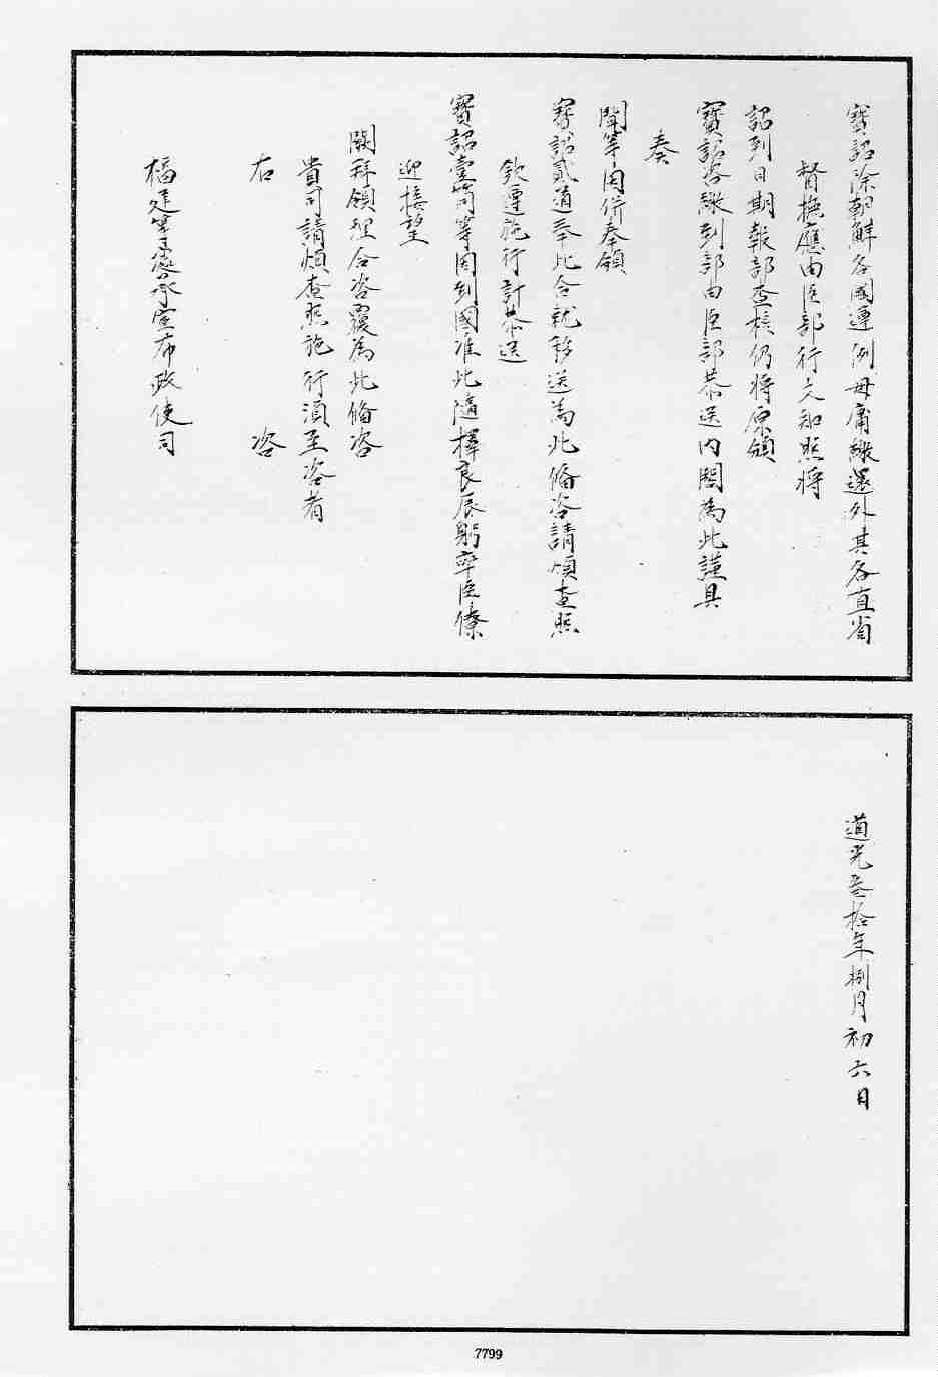 寶詔除朝鮮各國遵例毋庸繳還外其各直省
督撫應由臣部行文知照將
詔到日期報部查核仍將原領
寶詔咨繳到部由臣部恭送內閣為此謹具
奏
聞等因併奉領
寶詔貳道奉此合就移送為此備咨請煩查照
欽遵施行計恭送
寶詔壹筒等因到國准此隨擇良辰躬率臣僚
迎接望
闕拜領理合咨覆為此備咨
貴司請煩查照施行須至咨者
右　咨
福建等承宣布政使司
道光叁拾年捌月初六日
7799